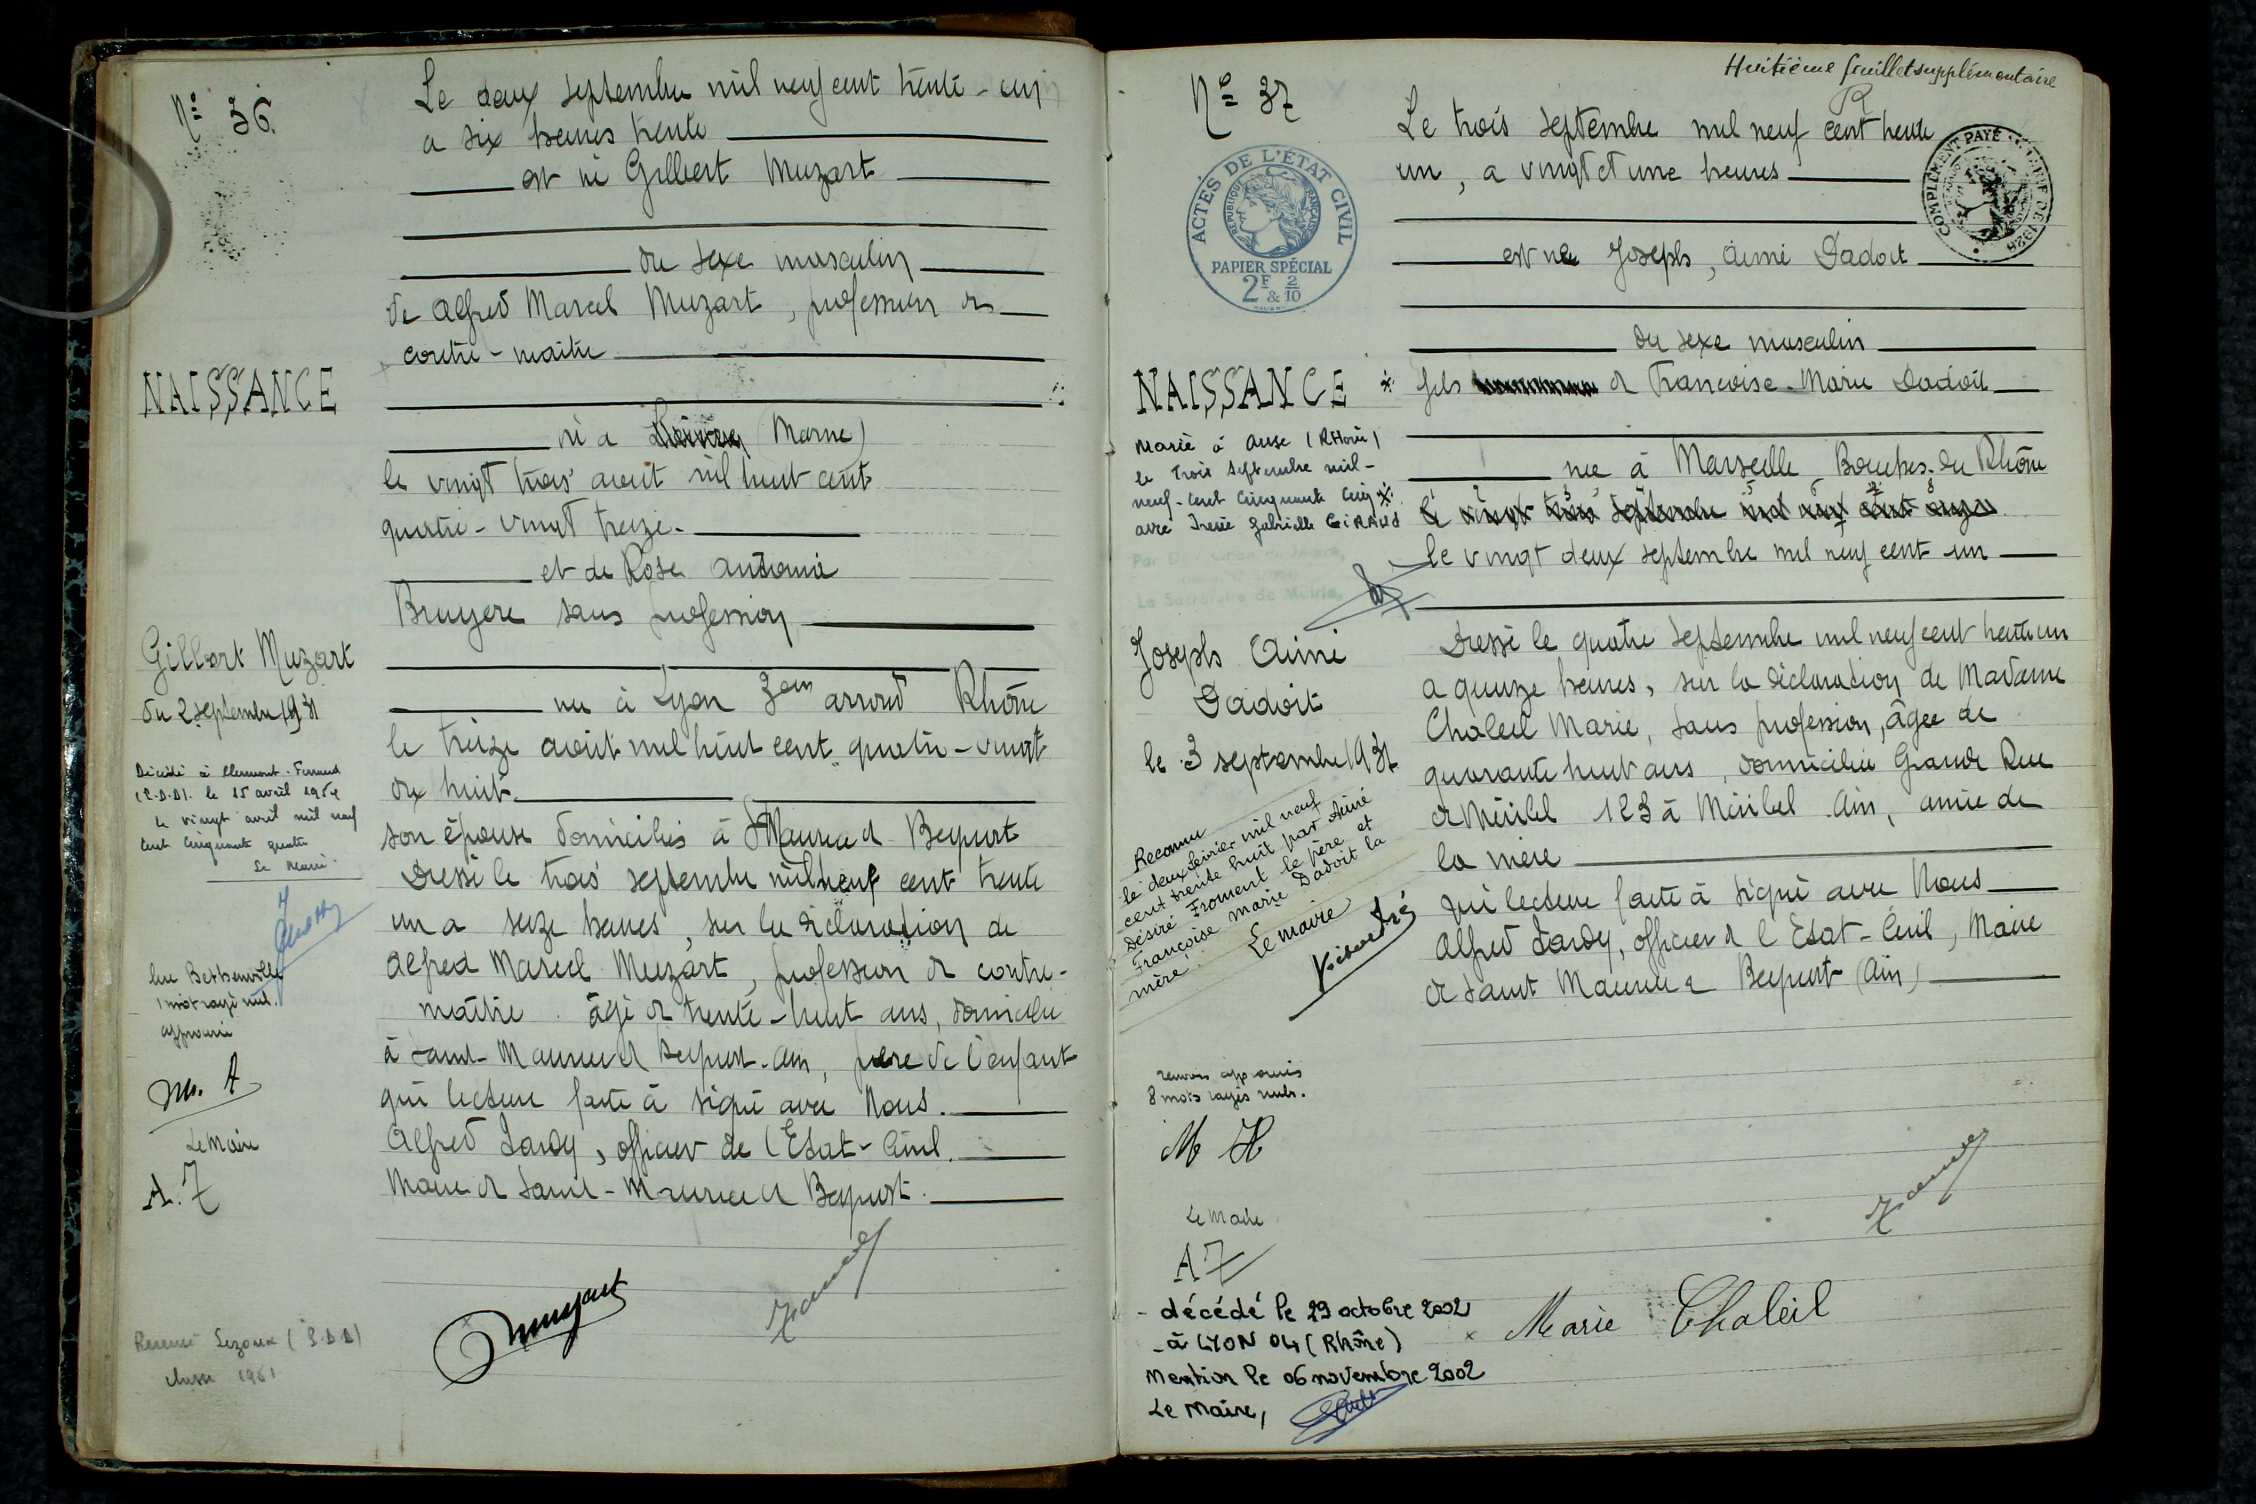 Nº 36.
Le deux septembre mil neuf cent trente-un
a six heures trente
est né Gilbert Muzart
du sexe masculin
de Alfred Marcel Muzart, profession de
contre-maître
NAISSANCE
né a (Marne)
le vingt trois aout mil huit cent
quatre-vingt treize.
et de Rose Antonia
Bruyere sans profession
Gilbert Muzart
du 2 septembre 1931
née à Lyon 3em arrond Rhône
le treize août mil huit cent quatre-vingt
dix huit.
son épouse domiciliés à St Maurice d Beynost
Dressé le trois septembre mil neuf cent trente
un a seize heures, sur la déclaration de
Alfred Marcel Muzart, profession de contre-
maître âgé de trente-huit ans, domicilié
à Saint-Maurice d Beynost. Ain, père de l'enfant
qui lecture faite à signé avec Nous.
Alfred Jardy, officier de l'Etat-Civil.
Maire de Saint-Maurice d Beynost.
Décédé à Clermont-Ferrand
(P.D.D). le 15 avril 1954
le vingt avril mil neuf
cent cinquante quatre
Le Maire
lire Betheniville
1 mot rayé nul.
approuvé
M. A
Le Maire
A. J
Recensé Lezoux (P.D.D)
classe 1951
Muzart
Huitième feuillet supplémentaire
Nº 37
Le trois septembre mil neuf cent trente
un, a vingt et une heures
COMPLÉMENT PAYÉ 1926
ACTES DE L'ÉTAT CIVIL
RÉPUBLIQUE FRANÇAISE
PAPIER SPÉCIAL
2F & 2/10
est né Joseph, Aimé Dadoit
du sexe masculin
NAISSANCE
fils de Francoise-Marie Dadoit
née à Marseille Bouches-du Rhône
le vingt trois septembre mil neuf cent onze
le vingt deux septembre mil neuf cent un
Marié à Anse (Rhône)
le trois septembre mil-
neuf-cent cinquante cinq
avec Irene Gabrielle GIRAUD
Le Secrétaire de Mairie,
Joseph Aimé
Dadoit
le 3 septembre 1931
Dressé le quatre septembre mil neuf cent trente un
a quinze heures, sur la déclaration de Madame
Chaleil Marie, sans profession, âgée de
quarante huit ans, domiciliée Grande Rue
de Miribel 123 à Miribel Ain, amie de
la mère
qui lecture faite à signé avec Nous
Alfred Jardy, officier de l'Etat-Civil, Maire
de Saint Maurice d Beynost (Ain)
Reconnu
le deux février mil neuf
cent trente huit par Aimé
Désiré Froment le père et
Francoise Marie Dadoit la
mère.
Le Maire
renvois approuvés
8 mots rayés nuls.
M H
Le Maire
A J
- décédé le 29 octobre 2002
- à LYON 04 (Rhône)
Mention le 06 novembre 2002
Le Maire,
Marie Chaleil